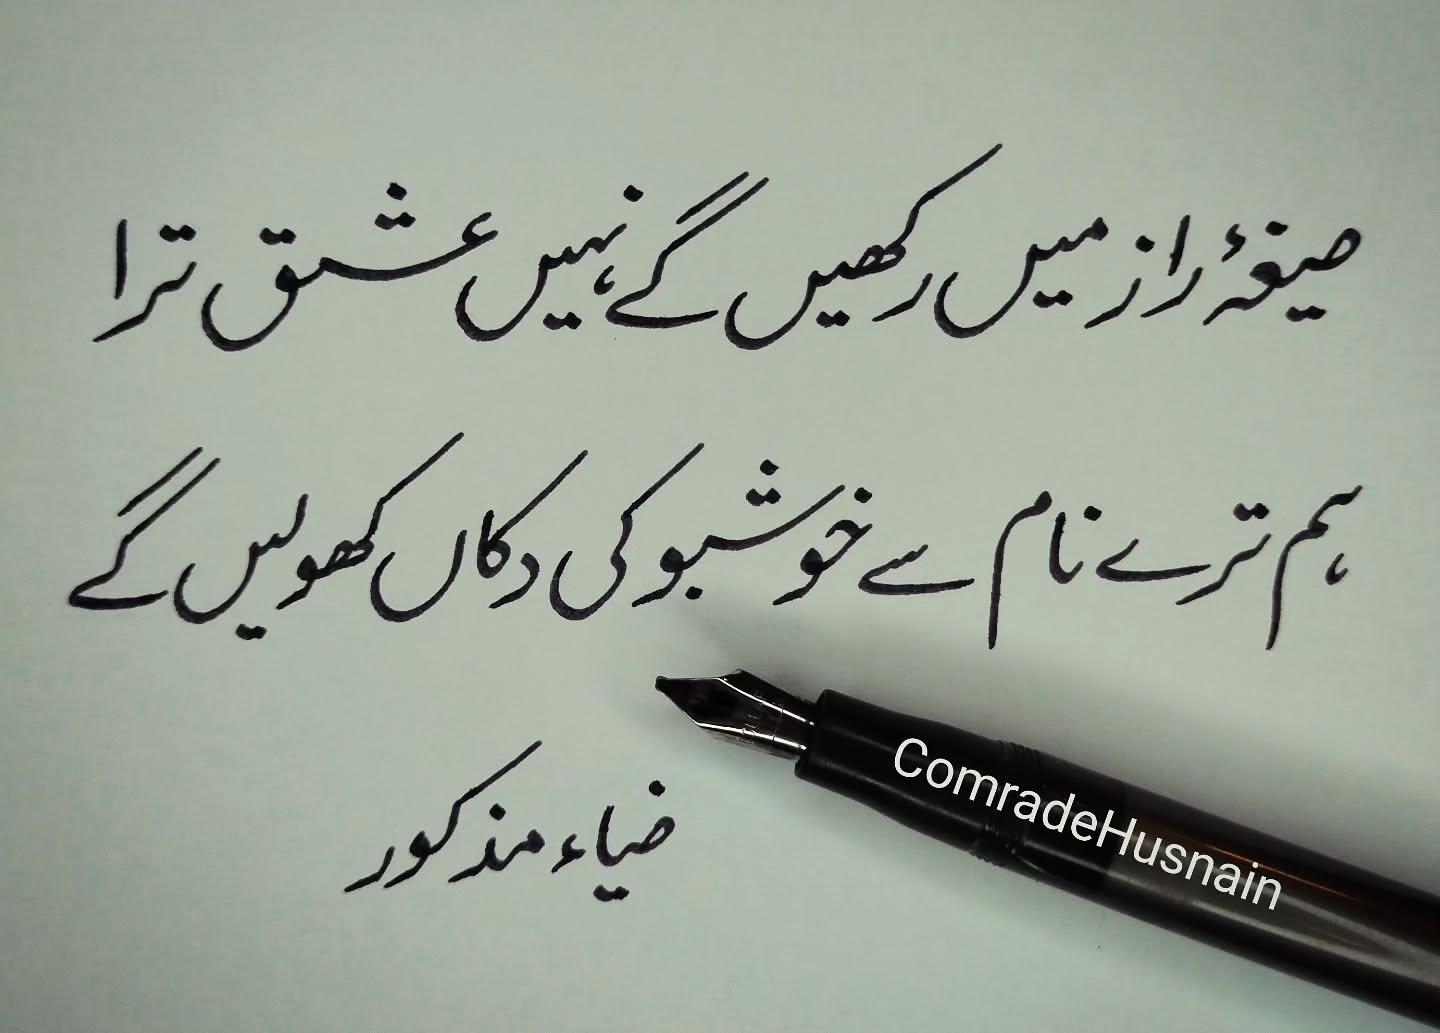 صیغۂ راز میں رکھیں گے نہیں عشق ترا
ہم ترے نام سے خوشبو کی دکاں کھولیں گے
ضیاء مذکور
ComradeHusnain